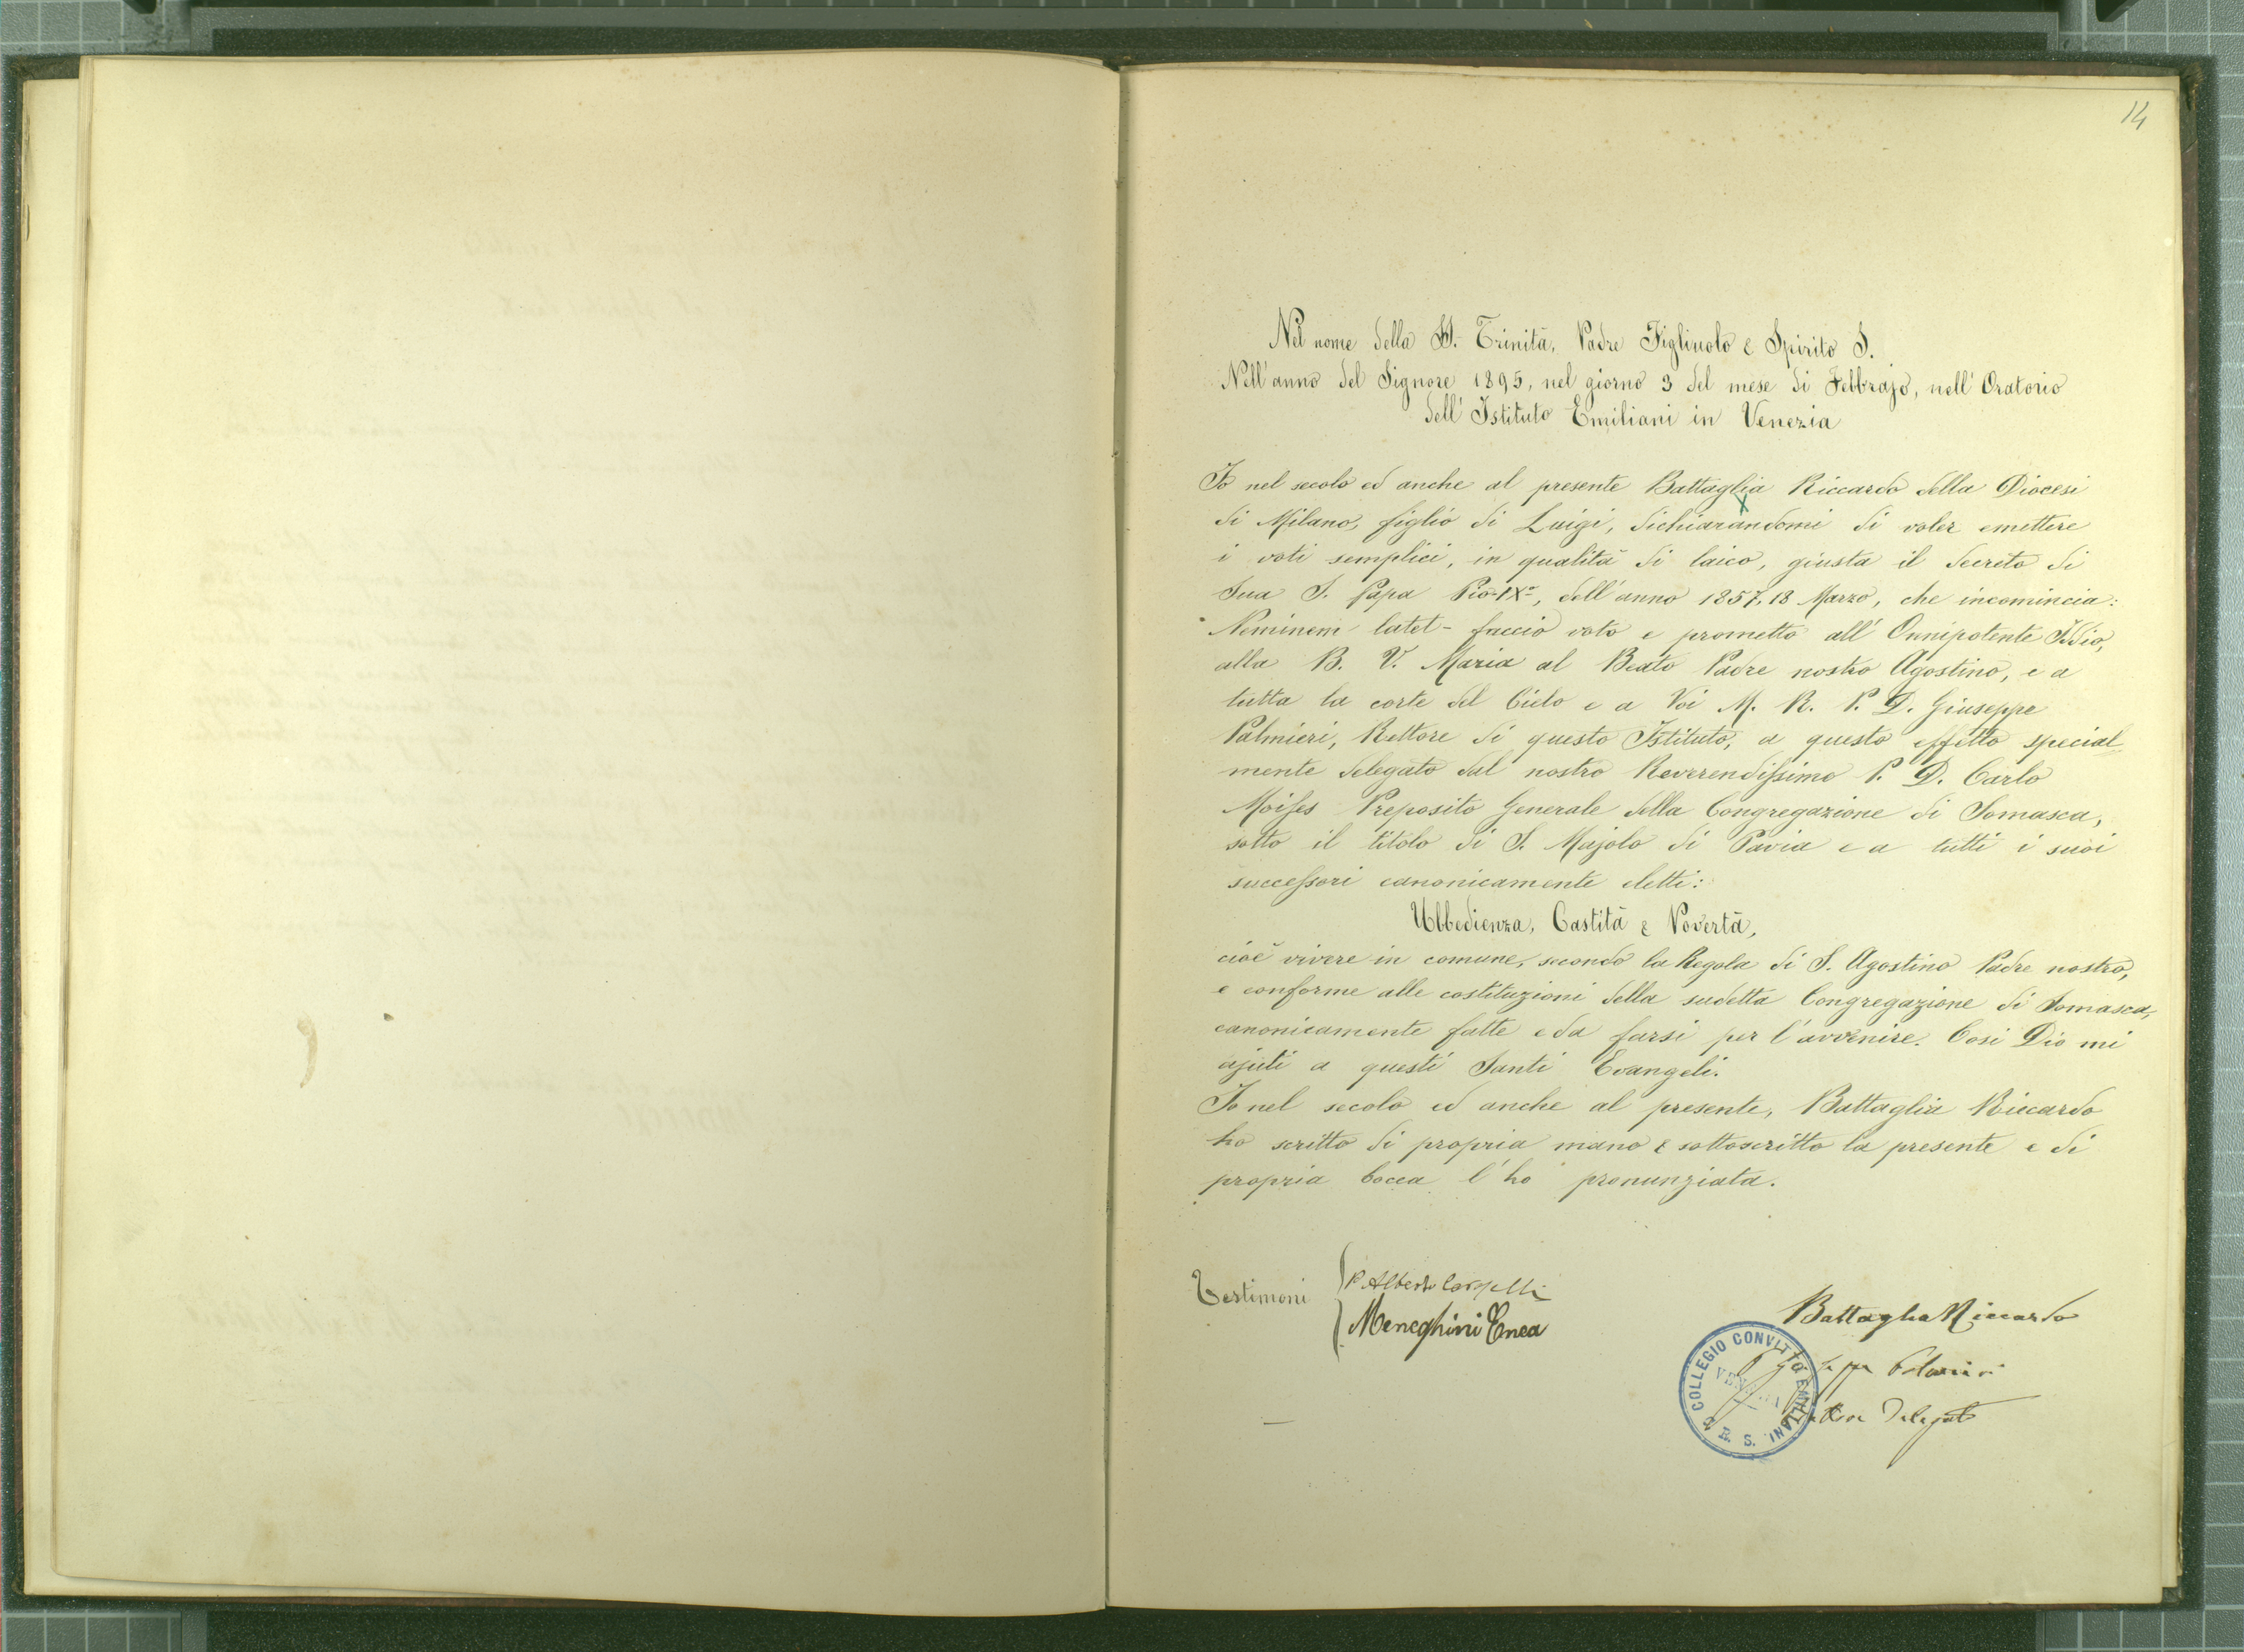 14
Nel nome della SS. Trinità, Padre Figliuolo e Spirito S.
Nell'anno del Signore 1895, nel giorno 3 del mese di Febbrajo, nell'Oratorio
dell'Istituto Emiliani in Venezia
Io nel secolo ed anche al presente Battaglia Riccardo della Diocesi
di Milano, figlio di Luigi, dichiarandomi di voler emettere
i voti semplici, in qualità di laico, giusta il decreto di
Sua S. Papa Pio IXº, dell'anno 1857, 18 Marzo, che incomincia:
Neminem latet - faccio voto e prometto all'Onnipotente Iddio,
alla B. V. Maria al Beato Padre nostro Agostino, e a
tutta la corte del Cielo e a Voi M. R. P. D. Giuseppe
Palmieri, Rettore di questo Istituto, a questo effetto special
mente delegato dal nostro Reverendissimo P. D. Carlo
Moises Preposito Generale della Congregazione di Somasca,
sotto il titolo di S. Majolo di Pavia e a tutti i suoi
successori canonicamente eletti:
Ubbedienza, Castità e Povertà,
cioè vivere in comune, secondo la Regola di S. Agostino Padre nostro,
e conforme alle costituzioni della sudetta Congregazione di Somasca,
canonicamente fatte e da farsi per l'avvenire. Così Dio mi
ajuti a questi Santi Evangeli.
Io nel secolo ed anche al presente, Battaglia Riccardo
ho scritto di propria mano e sottoscritto la presente e di
propria bocca l'ho pronunziata.
Testimoni
P. Alberto
Meneghini Enea
Battaglia Riccardo
Delegato
COLLEGIO CONVITTO EMILIANI
VENEZIA
C. R. S.